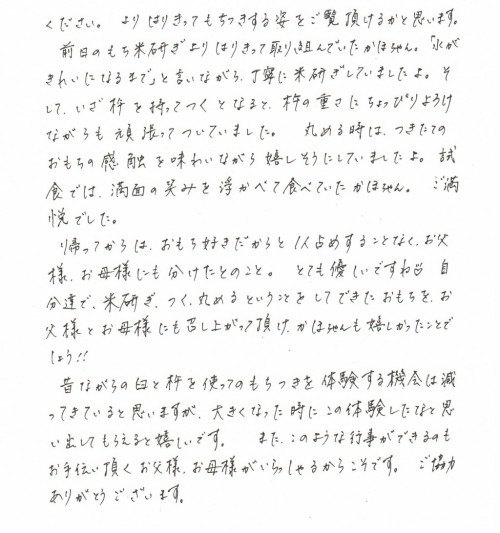 ください。 よりはりきってもちつきする姿をご覧頂けるかと思います。
前日のもち米研ぎよりはりきって取り組んでいたかほちゃん。「水が
きれいになるまで」と言いながら、丁寧に米研ぎしていましたよ。そ
して、いざ杵を持ってつくとなると、杵の重さにちょっぴりよろけ
ながらも頑張ってついていました。 丸める時は、つきたての
おもちの感触を味わいながら嬉しそうにしていましたよ。試
食では、満面の笑みを浮かべて食べていたかほちゃん。 ご満
悦でした。
帰ってからは、おもち好きだからと1人占めすることなく、お父
様、お母様にも分けたとのこと。 とても優しいですね 自
分達で、米研ぎ、つく、丸めるということをしてできたおもちを、お
父様とお母様にも召し上がって頂け、かほちゃんも嬉しかったことで
しょう!!
昔ながらの臼と杵を使ってのもちつきを体験する機会は減
ってきていると思いますが、大きくなった時にこの体験したなと思
い出してもらえると嬉しいです。 また、このような行事ができるのも
お手伝い頂くお父様、お母様がいらっしゃるからこそです。 ご協力
ありがとうございます。